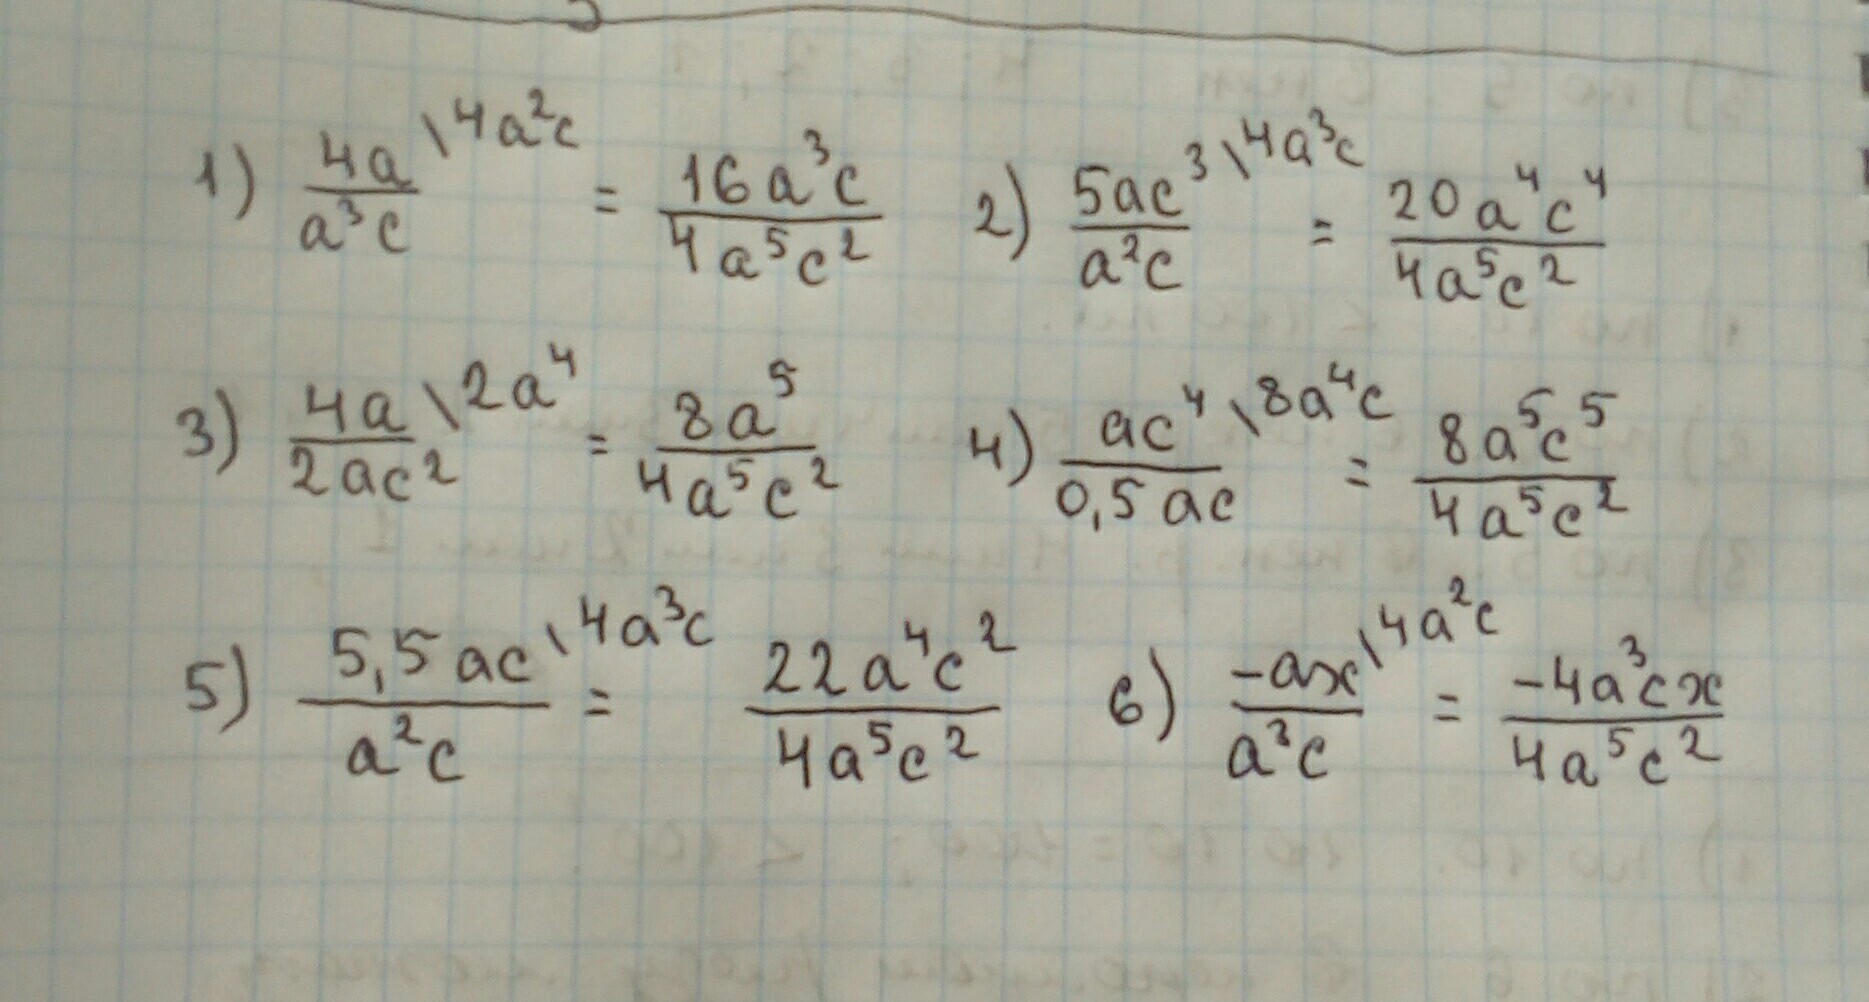 1) 4a/a³c \4a²c = 16a³c/4a⁵c² 2) 5ac³/a²c \4a³c = 20a⁴c⁴/4a⁵c²
3) 4a/2ac² \2a⁴ = 8a⁵/4a⁵c² 4) ac⁴/0,5ac \8a⁴c = 8a⁵c⁵/4a⁵c²
5) 5,5ac/a²c \4a³c = 22a⁴c²/4a⁵c² 6) -ax/a³c \4a²c = -4a³cx/4a⁵c²